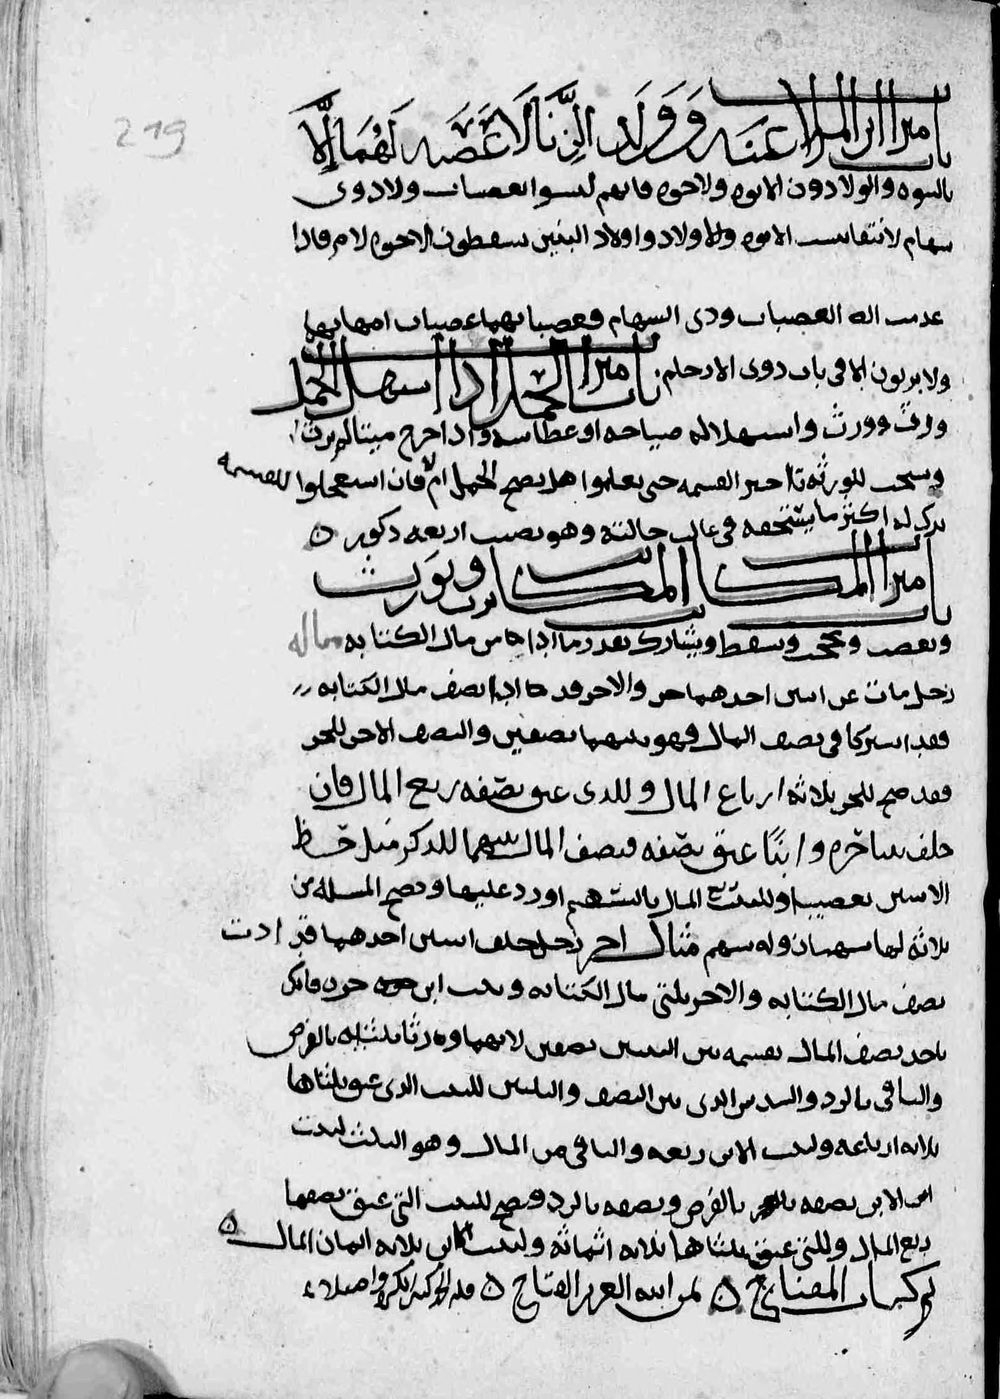 219
باب ميراث ابن الملاعنة وولد الزنا لا عصبة لهما إلا
بالبنوة والولاد دون الابوة ولاخوة فانهم ليسوا بعصبات ولا ذوى
سهام لانتفا نسب الابوة والاولاد واولاد البنين يسقطون الاخوة لام فاذا
عدمت اله العصبات وذى السهام فعصباتهما عصبات امهاتهما
ولا يرثون الا فى باب ذوى الارحام باب ميراث الحمل اذا استهل الحمل
ورث وورث واستهلاله صياحه او عطاسه واذا خرج ميتا لم يرث
ويستحب للورثة تاخير القسمة حتى يعلموا هل يصح الحمل ام لا فان استعجلوا للقسمة
ترك له اكثر ما يستحقه فى غالب حالته وهو نصيب اربعة ذكور ٥
باب ميراث المكاتب المكاتب يرث ويورث
ويعصب ويحجب ويسقط ويشارك بقدر ما ادا من مال الكتابة مثاله
رجل مات عن ابنين احدهما حر والاخر قد ادا نصف مال الكتابة
فقد اشتركا فى نصف المال فهو بينهما نصفين والنصف الاخر للحر
فقد صح للحر ثلاثة ارباع المال وللذى عتق نصفه ربع المال فان
خلف بنتا حرة وابنا عتق نصفه فنصف المال بينهما للذكر مثل حظ
الانثيين تعصيبا وللبنت ربع المال بالسهم او رد عليها وتصح المسلة من
ثلاثة لها سهمان وله سهم مثال اخر رجل خلف ابنتين احدهما قد ادت
نصف مال الكتابة والاخر ثلثى مال الكتابة وبنت ابن حرة فانك
تاخذ نصف المال تقسمه بين البنتين نصفين لانهما ورثا ثلثيه بالفرض
والباقى بالرد والسدس الذى بين النصف والثلثين للبنت الذى عتق ثلثاها
ثلاثة ارباعه ولبنت الابن ربعه والباقى من المال وهو الثلث لبنت
الابن نصفه بالفرض ونصفه بالرد فيصح للبنت التى عتق نصفها
ربع المال وللتى عتق ثلثاها ثلاثة اثمانه ولبنت الابن ثلاثة اثمان المال ٥
تم كتاب المفتاح ٥ بمن الله العزيز الفتاح ٥